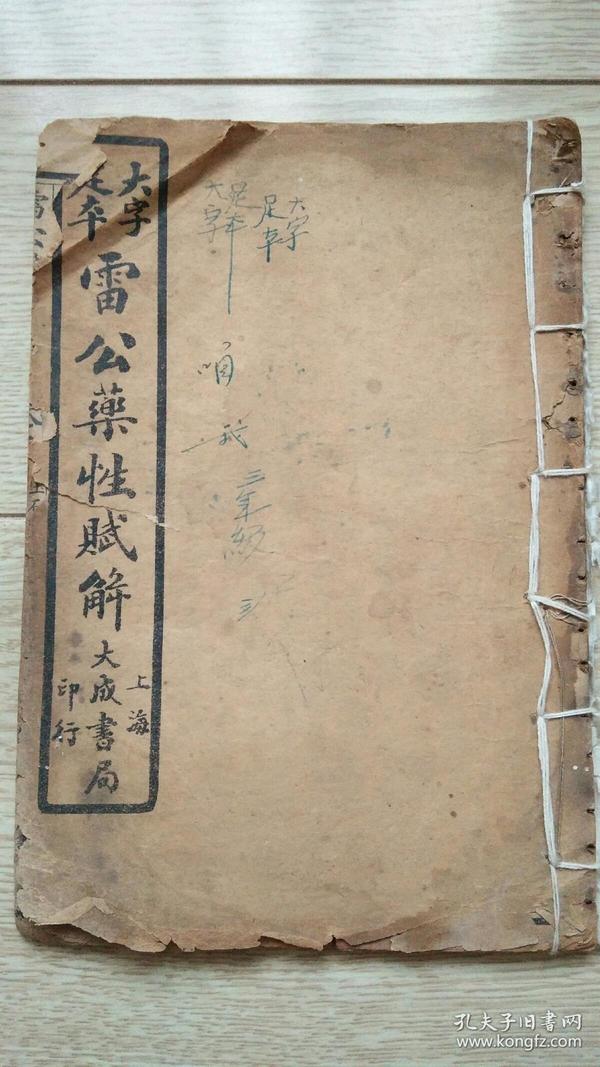 大字
足本
雷公藥性賦解
上海
大成書局
印行
大字
足本
大字
足本
三年級
孔夫子旧书网
www.kongfz.com